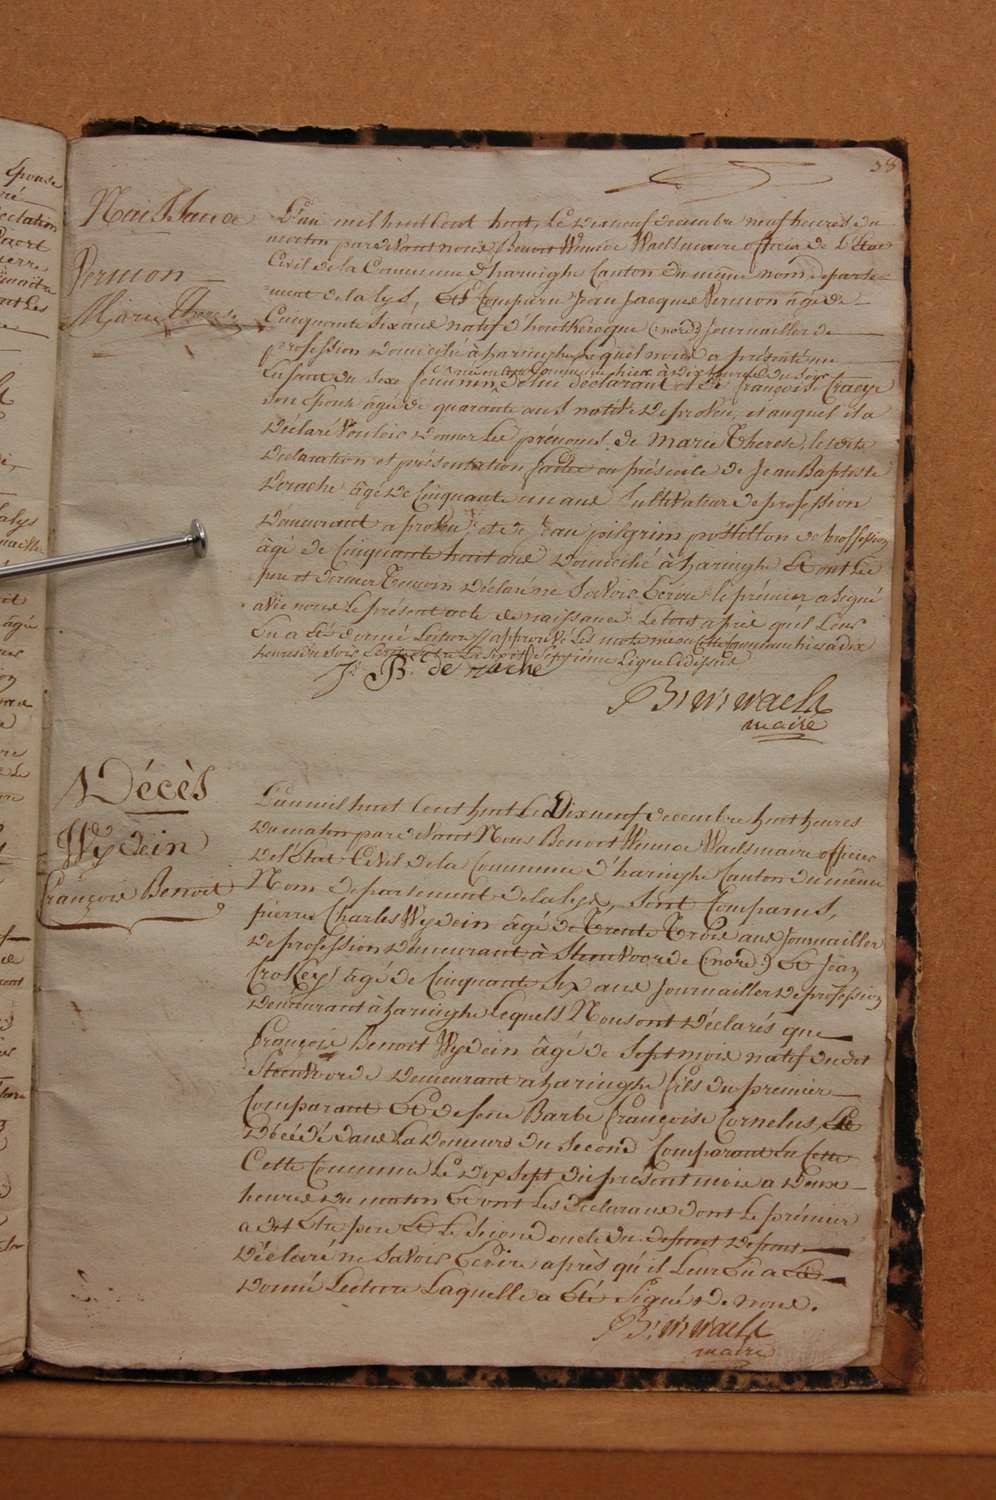 38
Naissance
Vermon
Marie Therese
L'an mil huit Cent huit, le Dixneuf decembre neuf heures du
matin pardevant nous Benoit Winnoc Waels maire officier de l'Etat
Civil de la Commune d'haringhe Canton du meme nom departe-
ment de la lys, Est Comparu Jean Jacques Vermon âgé de
Cinquante Six ans natif d'houtkercque (nord) Journailler de
profession domicilié à haringhe lequel nous a présenté un
né en cette Commune hier à dix heures du Soir
Enfant du Sexe feminin, de lui déclarant et de françoise Craeye
Son Epouse âgée de quarante ans native de proven, et auquel il a
Déclaré Vouloir donner les prénoms de Marie Therese, les dite
Declaration et présentation faites en présence de Jean Baptiste
Derache âgé de Cinquante un ans Cultivateur de profession
Demeurant a proven et de Jean pelgrim postillon de proffession
âgé de Cinquante huit ans Domicilié à haringhe Et ont les
pere et dernier Temoin Déclaré ne Savoir Ecrire le prémier a Signé
avec nous le présent acte de naissance le tout après qu'il Leur
En a Eté donné Lecture // approuvé les mots né en Cette Commune hier à dix
heures du Soir Septième Ligne Cidessus
J. B. de rache
B: W: Waels
maire
Décès
Wydein
françois Benoit
L'an mil huit Cent huit le Dixneuf decembre huit heures
du matin pardevant Nous Benoit Winnoc Waels maire officier
de l'Etat Civil de la Commune d'haringhe Canton du même
Nom departement de la lys, Sont Comparus,
pierre Charles Wydein âgé de Trente Trois ans Journailler
de profession demeurant à Steenvoorde (nord) Et Jean
Crokey âgé de Cinquante Six ans Journailler de profession
demeurant à haringhe Lequels Nous ont déclarés que
françois Benoit Wydein âgé de Sept mois natif dudit
Steenvoorde demeurant a haringhe fils du premier
Comparant Et de feue Barbe françoise Cornelus, Est
Décédé dans La demeure du Second Comparant En Cette
Cette Commune Le Dix Sept du présent mois a Deux
heures du matin Et ont les Déclarans dont le prémier
a dit Etre pere Et le Second oncle du defunt
Déclaré ne Savoir Ecrire après qu'il Leur En a Eté
Donné Lecture Laquelle a Eté Signée de nous.
B: W: Waels
maire